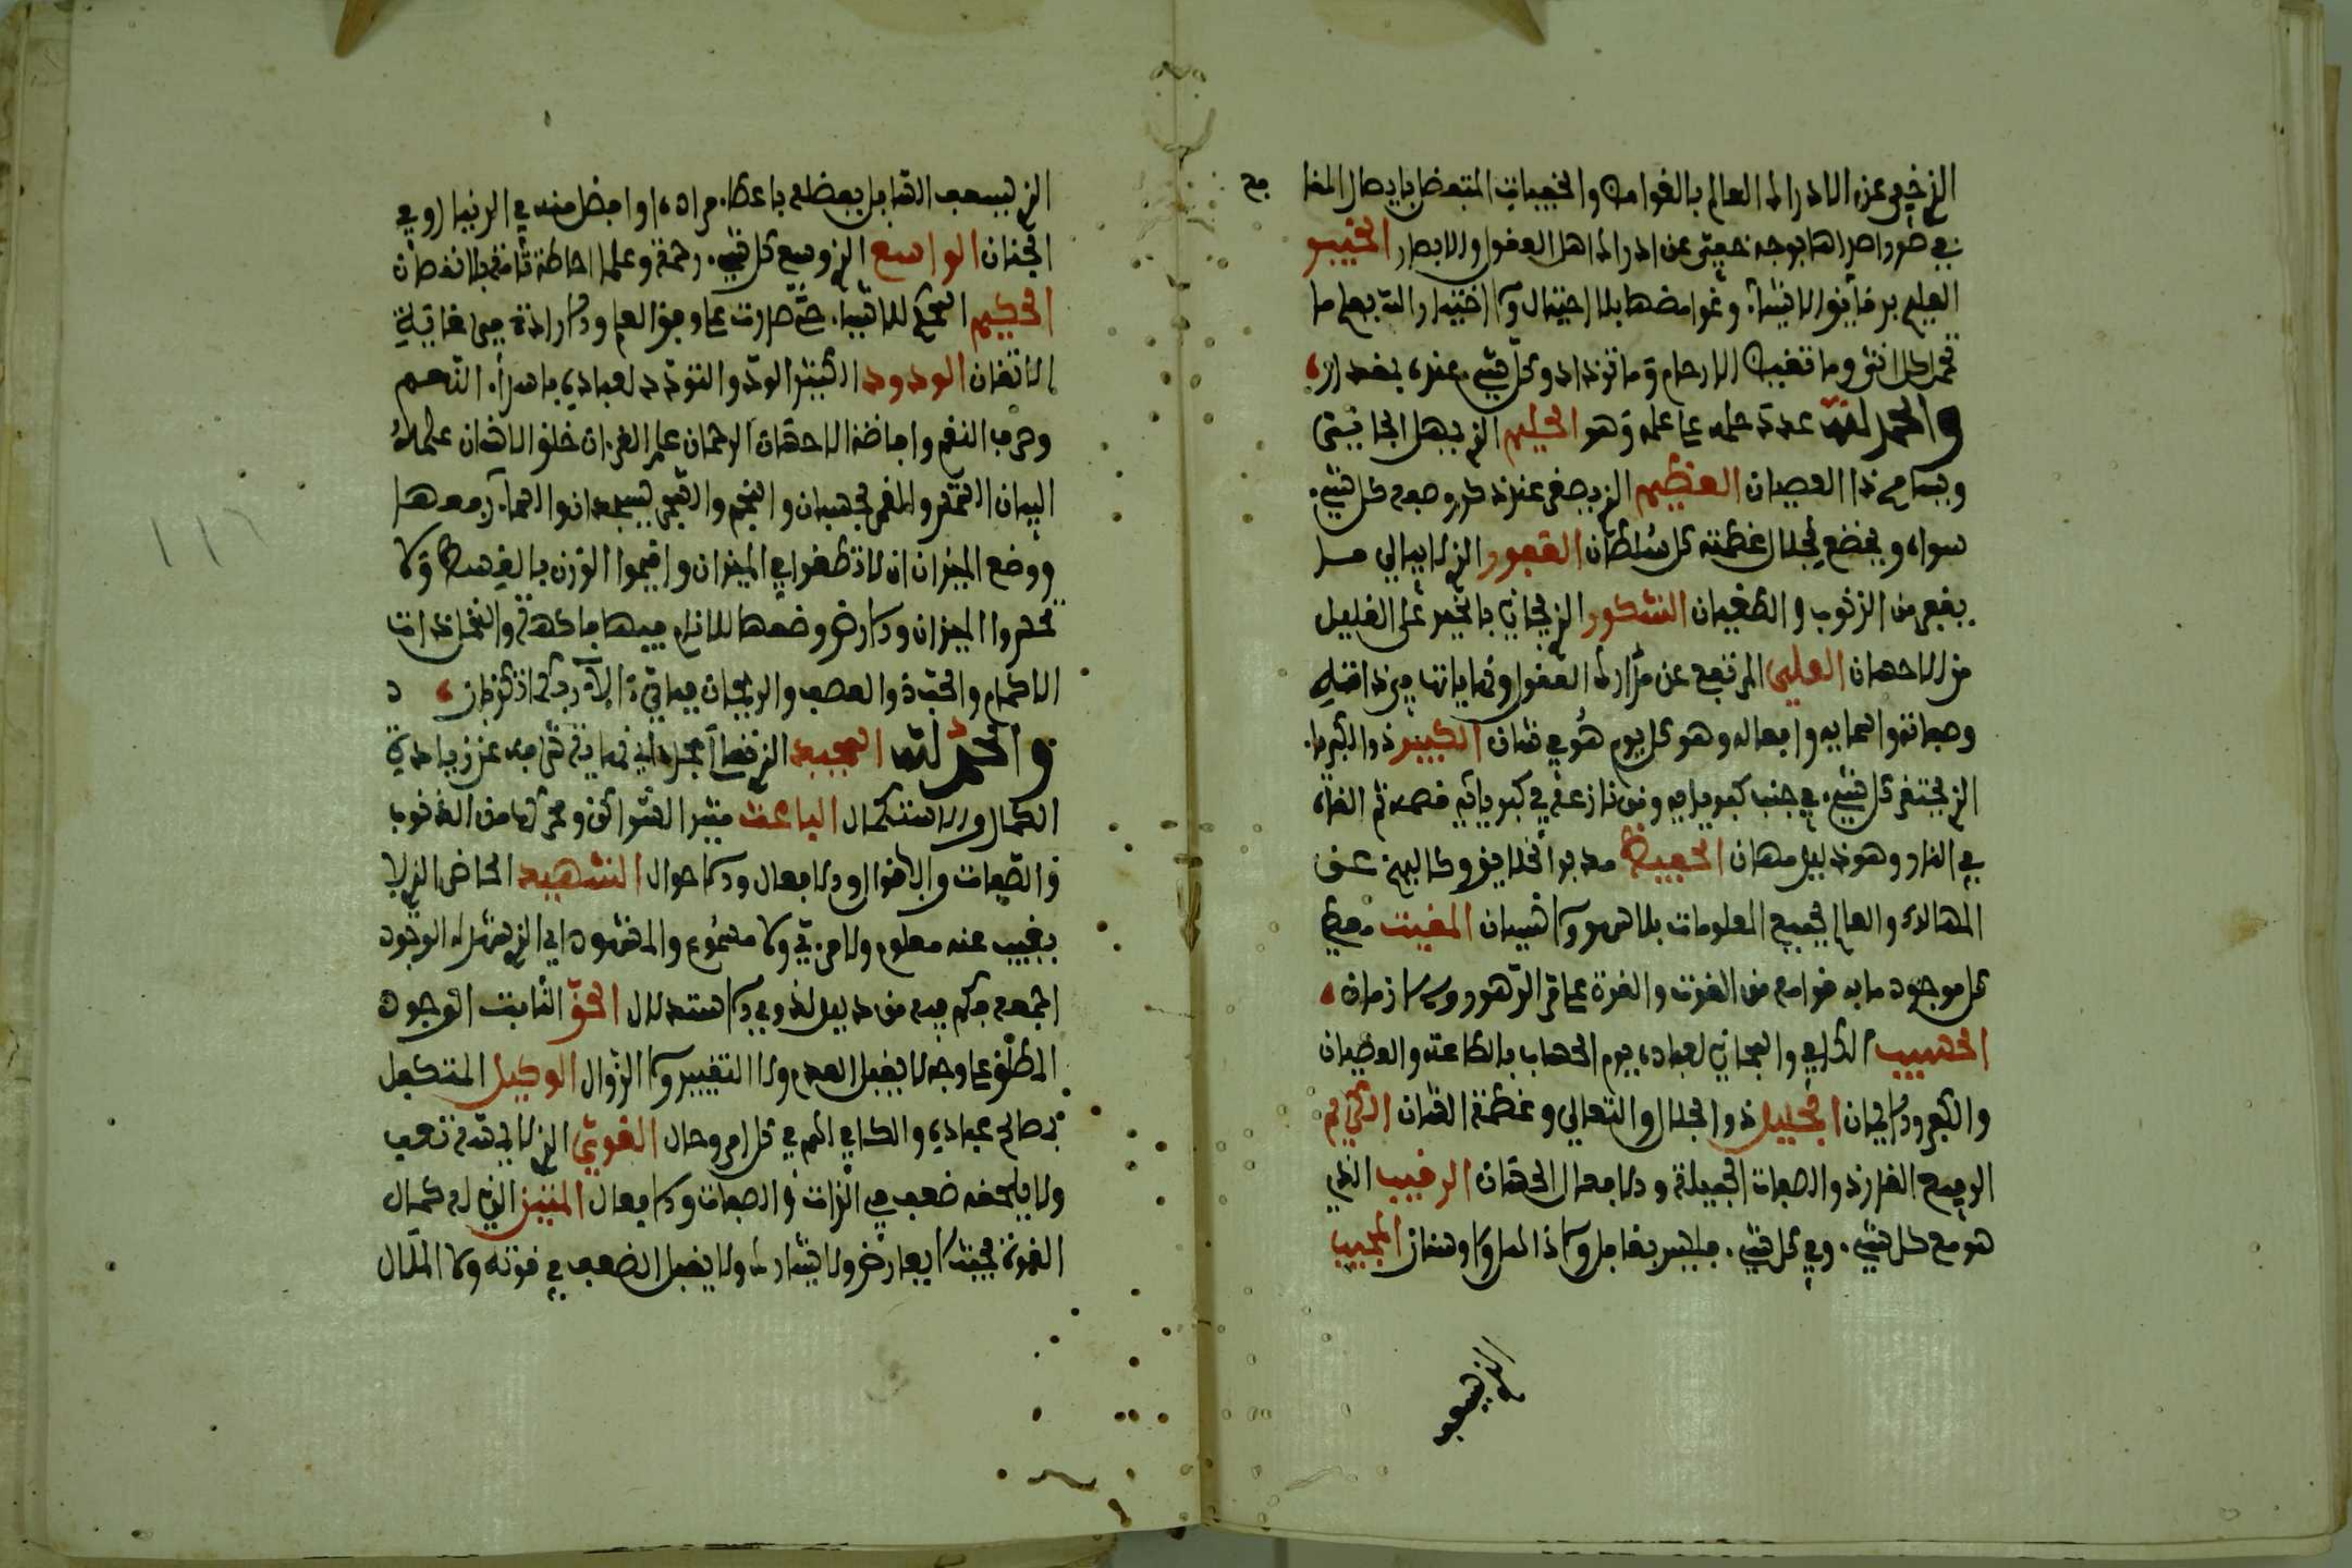 الذي خفي عن الادراك العالم بالغوامض والخفيات المتفضل بايصال المنا
فع
في صور اضدادها بوجه خفي عن ادراك اهل العقول والابصار الخبير
العليم بدقائق الاشياء وغوامضها بلا احتيال ولا اختبار الله يعلم ما
تحمل كل انثى وما تغيض الارحام وما تزداد وكل شيء عنده بمقدار
والحمد لله عدد حلمه على علمه وهو الحليم الذي يمهل الجاني
ويسامح ذا العصيان العظيم الذي يصغر عند ذكر وصفه كل شيء
سواه ويخضع لجلال عظمته كل سلطان الغفور الذي لا يبالي مما
يغفر من الذنوب والطغيان الشكور الذي يجازي بالخير على القليل
من الاحسان العلي المرتفع عن مدارك العقول ونهاياتها في ذاته
وصفاته واسمايه وافعاله وهو كل يوم هو في شان الكبير ذو الكبرياء
الذي يحتقر كل شيء في جنب كبريايه ومن نازعه في كبريائه قصمه ثم القاه
في النار وهو ذليل مهان الحفيظ مدبر الخلايق وكاليهم عن
المهالك والعالم لجميع المعلومات بلا سهو ولا نسيان المغيث معطي
كل موجود ما به قوامه من القوت والقوة على مر الدهور والازمان
الحسيب الكافي والمجازي لعباده يوم الحساب بالطاعة والعصيان
والكفر والايمان الجليل ذو الجلال والتعالي وعظمة الشان الكريم
الرفيع القدر ذو الصفات الجميلة والافعال الحسان الرقيب الذي
هو مع كل شيء وفي كل شيء فليس بغافل ولا ذاهل ولا وسنان المجيب
الذي يسعف
الذي يسعف السايل بفضله باعطاء مراده او افضل منه في الدنيا او في
الجنان الواسع الذي وسع كل شيء رحمة وعلما احاطة تامة بلا نقصان
الحكيم المحكم للاشياء حتى صدرت على وفق العلم والارادة في غاية
الاتقان الودود الكثير الود والتودد لعباده باسداء النعم
وصرف النقم وافاضة الاحسان الرحمان علم القرءان خلق الانسان علمه
البيان الشمس والقمر بحسبان والنجم والشجر يسجدان والسماء رفعها
ووضع الميزان ان لا تطغوا في الميزان واقيموا الوزن بالقسط ولا
تخسروا الميزان والارض وضعها للانام فيها فاكهة والنخل ذات
الاكمام والحب ذو العصف والريحان فباي ءالاء ربكما تكذبان
والحمد لله المجيد الذي مجده في نهاية شرفه عن زيادة
الكمال والاستكمال الباعث مثير السواكن ومحركها من الذنوب
والصفات والاقوال والافعال والاحوال الشهيد الحاضر الذي لا
يغيب عنه معلوم ولا مريي ولا مسموع والمشهود اي الذي
فيه من دليل لذوي الاستدلال الحق الثابت الوجود
المطلق على وجه لا يقبل العدم ولا التغيير ولا الزوال الوكيل المتكفل
بمصالح عباده والكافي لهم في كل امر وحال القوي الذي لا يمسه تعب
ولا يلحقه ضعف في الذات والصفات والافعال المتين الذي له كمال
القوة بحيث لا يعارض ولا يشارك ولا يقبل الضعف في قوته ولا الملال
١١٦